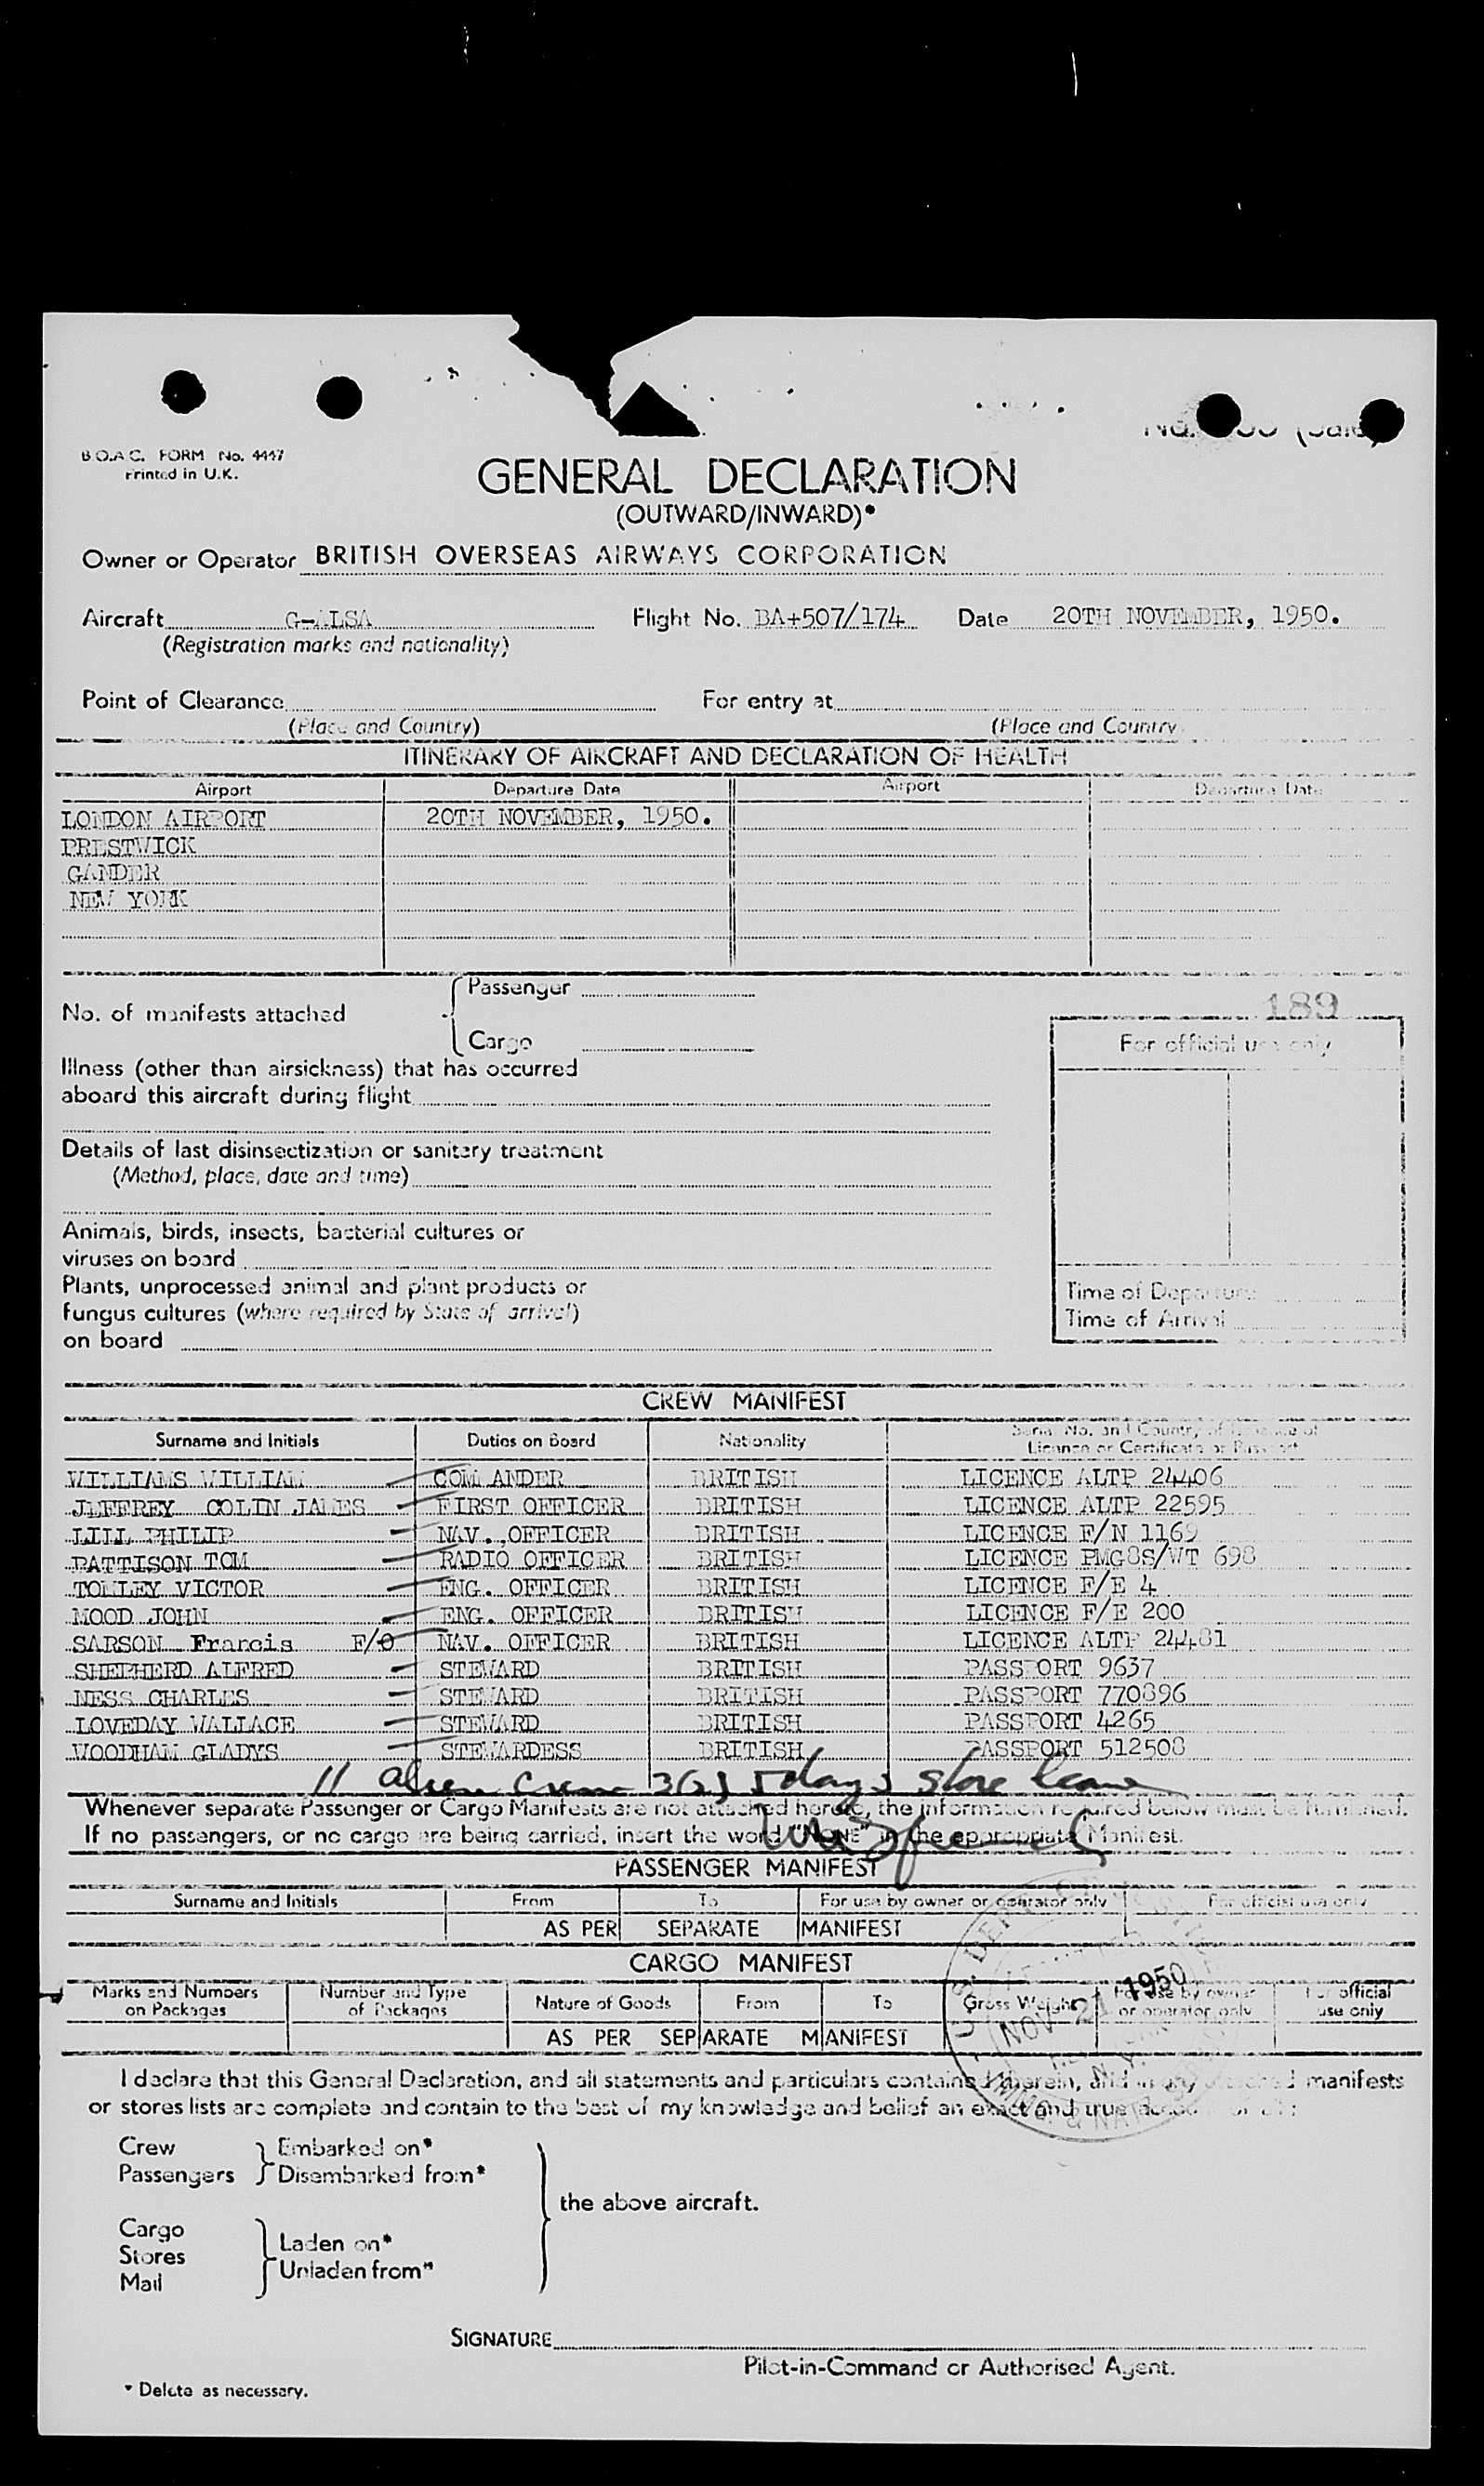 B.O.A.C. FORM No. 4447
Printed in U.K.
GENERAL DECLARATION
(OUTWARD/INWARD)*
Owner or Operator BRITISH OVERSEAS AIRWAYS CORPORATION
Aircraft G-ALSA Flight No. BA+507/174 Date 20TH NOVEMBER, 1950.
(Registration marks and nationality)
Point of Clearance For entry at
(Place and Country) (Place and Country
ITINERARY OF AIRCRAFT AND DECLARATION OF HEALTH
Airport Departure Date Airport Departure Date
LONDON AIRPORT 20TH NOVEMBER, 1950.
PRESTWICK
GANDER
NEW YORK
No. of manifests attached { Passenger
Cargo
189
For official use only
Illness (other than airsickness) that has occurred
aboard this aircraft during flight
Details of last disinsectization or sanitary treatment
(Method, place, date and time)
Animals, birds, insects, bacterial cultures or
viruses on board
Plants, unprocessed animal and plant products or
fungus cultures (where required by State of arrival)
on board
Time of Departure
Time of Arrival
CREW MANIFEST
Surname and Initials Duties on Board Nationality Serial No. and Country of Issuance of
Licence or Certificate or Passport
WILLIAMS WILLIAM COMMANDER BRITISH LICENCE ALTP 24406
JEFFREY COLIN JAMES FIRST OFFICER BRITISH LICENCE ALTP 22595
LILL PHILIP NAV. OFFICER BRITISH LICENCE F/N 1169
PATTISON TOM RADIO OFFICER BRITISH LICENCE PMG8S/WT 698
TOMLEY VICTOR ENG. OFFICER BRITISH LICENCE F/E 4
MOOD JOHN ENG. OFFICER BRITISH LICENCE F/E 200
SARSON Francis F/O NAV. OFFICER BRITISH LICENCE ALTP 24481
SHEPHERD ALFRED STEWARD BRITISH PASSPORT 9637
NESS CHARLES STEWARD BRITISH PASSPORT 770896
LOVEDAY WALLACE STEWARD BRITISH PASSPORT 4265
WOODHAM GLADYS STEWARDESS BRITISH PASSPORT 512508
11 alien crew 3(5) 5 days shore leave
Whenever separate Passenger or Cargo Manifests are not attached hereto, the information required below must be furnished.
If no passengers, or no cargo are being carried, insert the word "NONE" in the appropriate Manifest.
PASSENGER MANIFEST
Surname and Initials From To For use by owner or operator only For official use only
AS PER SEPARATE MANIFEST
CARGO MANIFEST
Marks and Numbers on Packages Number and Type of Packages Nature of Goods From To Gross Weight For use by owner or operator only For official use only
AS PER SEPARATE MANIFEST
NOV 21 1950
I declare that this General Declaration, and all statements and particulars contained therein, and in any attached manifests
or stores lists are complete and contain to the best of my knowledge and belief an exact and true account of all:
Crew
Passengers } Embarked on*
Disembarked from*
the above aircraft.
Cargo
Stores
Mail } Laden on*
Unladen from*
SIGNATURE
Pilot-in-Command or Authorised Agent.
* Delete as necessary.